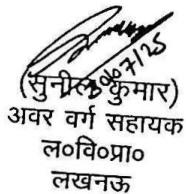 (सुनील कुमार)
अवर वर्ग सहायक
ल०वि०प्रा०
लखनऊ